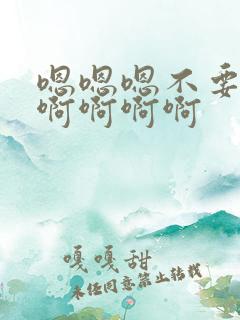 嗯嗯嗯不要
啊啊啊啊
嘎嘎甜
未经同意禁止转载